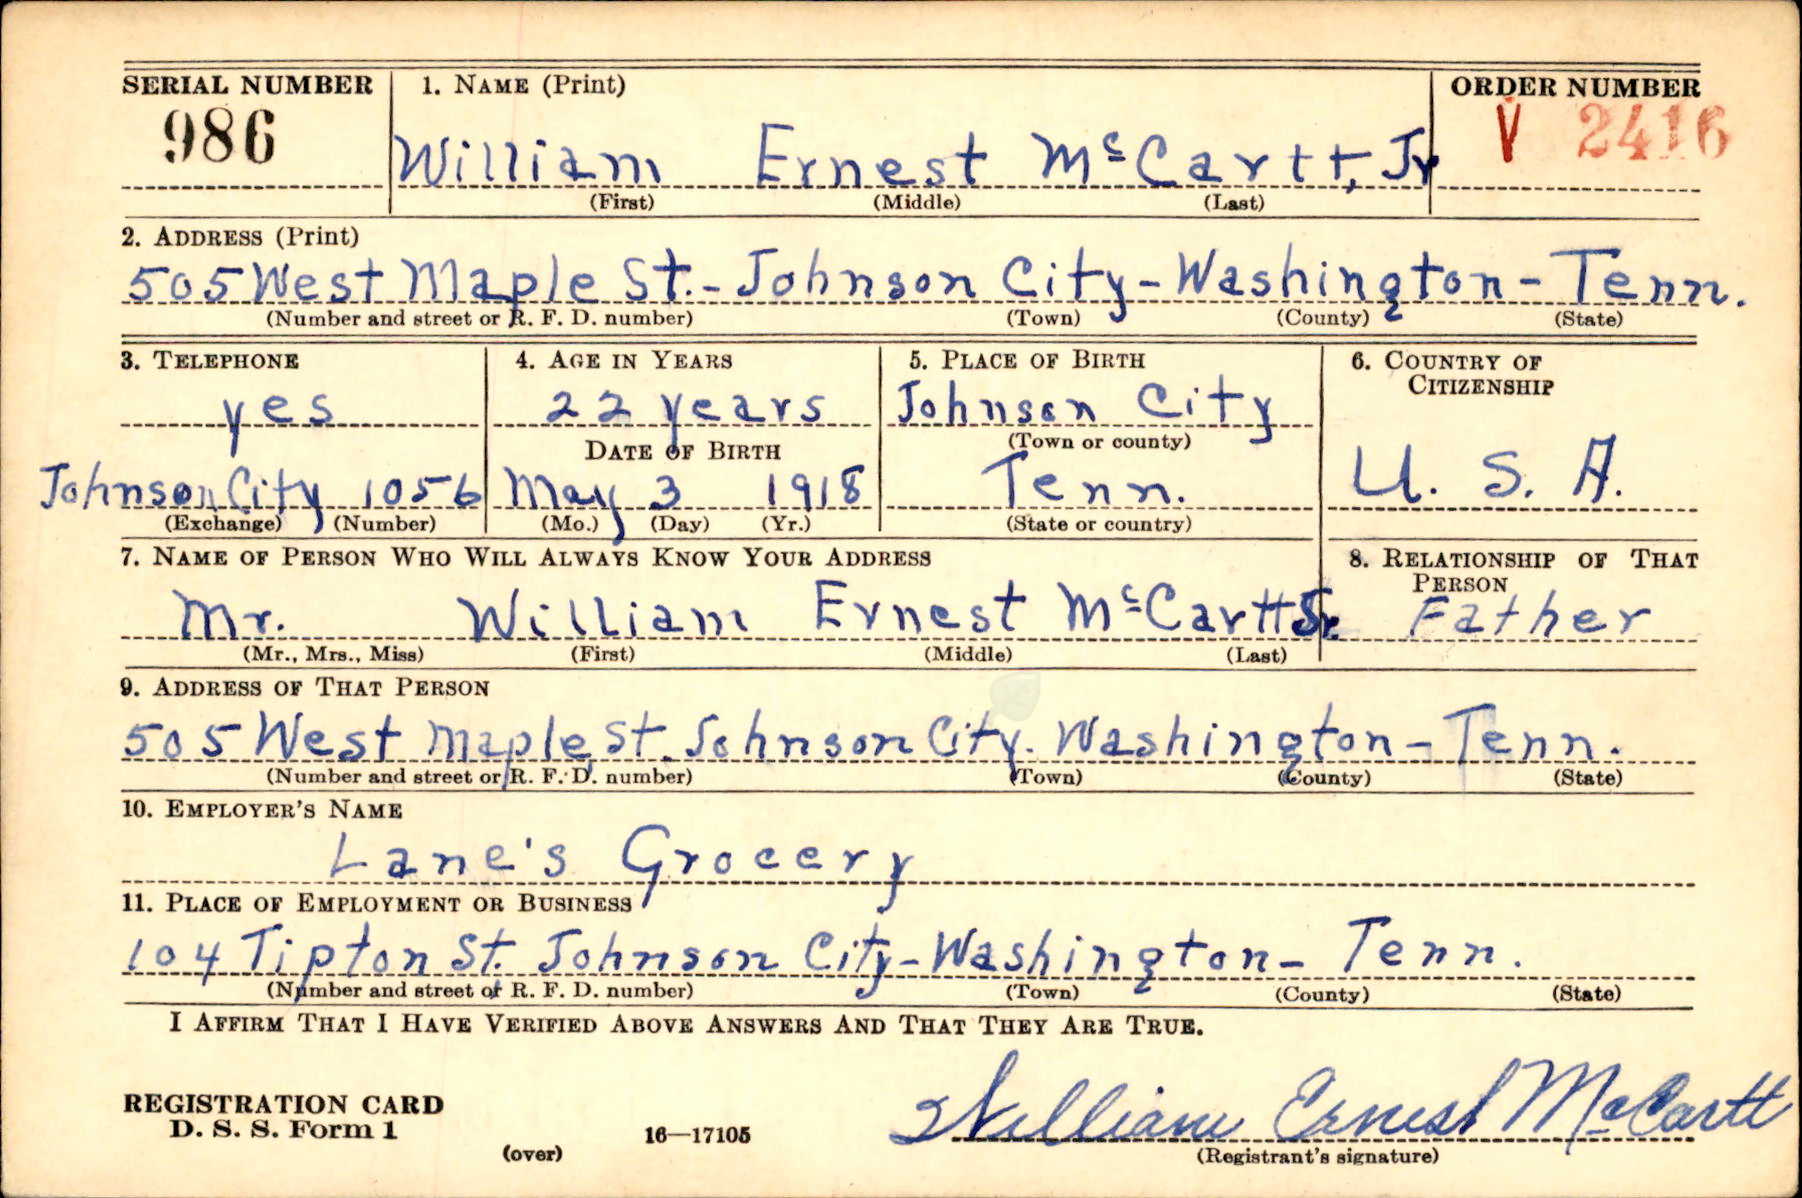 SERIAL NUMBER 1. NAME (Print) ORDER NUMBER
986 William Ernest McCartt, Jr V 2416
(First) (Middle) (Last)
2. ADDRESS (Print)
505 West Maple St. - Johnson City - Washington - Tenn.
(Number and street or R. F. D. number) (Town) (County) (State)
3. TELEPHONE 4. AGE IN YEARS 5. PLACE OF BIRTH 6. COUNTRY OF
CITIZENSHIP
yes 22 years Johnson City
DATE OF BIRTH (Town or county)
Johnson City 1056 May 3 1918 Tenn. U. S. A.
(Exchange) (Number) (Mo.) (Day) (Yr.) (State or country)
7. NAME OF PERSON WHO WILL ALWAYS KNOW YOUR ADDRESS 8. RELATIONSHIP OF THAT
PERSON
Mr. William Ernest McCartt Sr. Father
(Mr., Mrs., Miss) (First) (Middle) (Last)
9. ADDRESS OF THAT PERSON
505 West Maple St. Johnson City. Washington - Tenn.
(Number and street or R. F. D. number) (Town) (County) (State)
10. EMPLOYER'S NAME
Lane's Grocery
11. PLACE OF EMPLOYMENT OR BUSINESS
104 Tipton St. Johnson City - Washington - Tenn.
(Number and street or R. F. D. number) (Town) (County) (State)
I AFFIRM THAT I HAVE VERIFIED ABOVE ANSWERS AND THAT THEY ARE TRUE.
REGISTRATION CARD
D. S. S. Form 1 William Ernest McCartt
(over) 16—17105 (Registrant's signature)